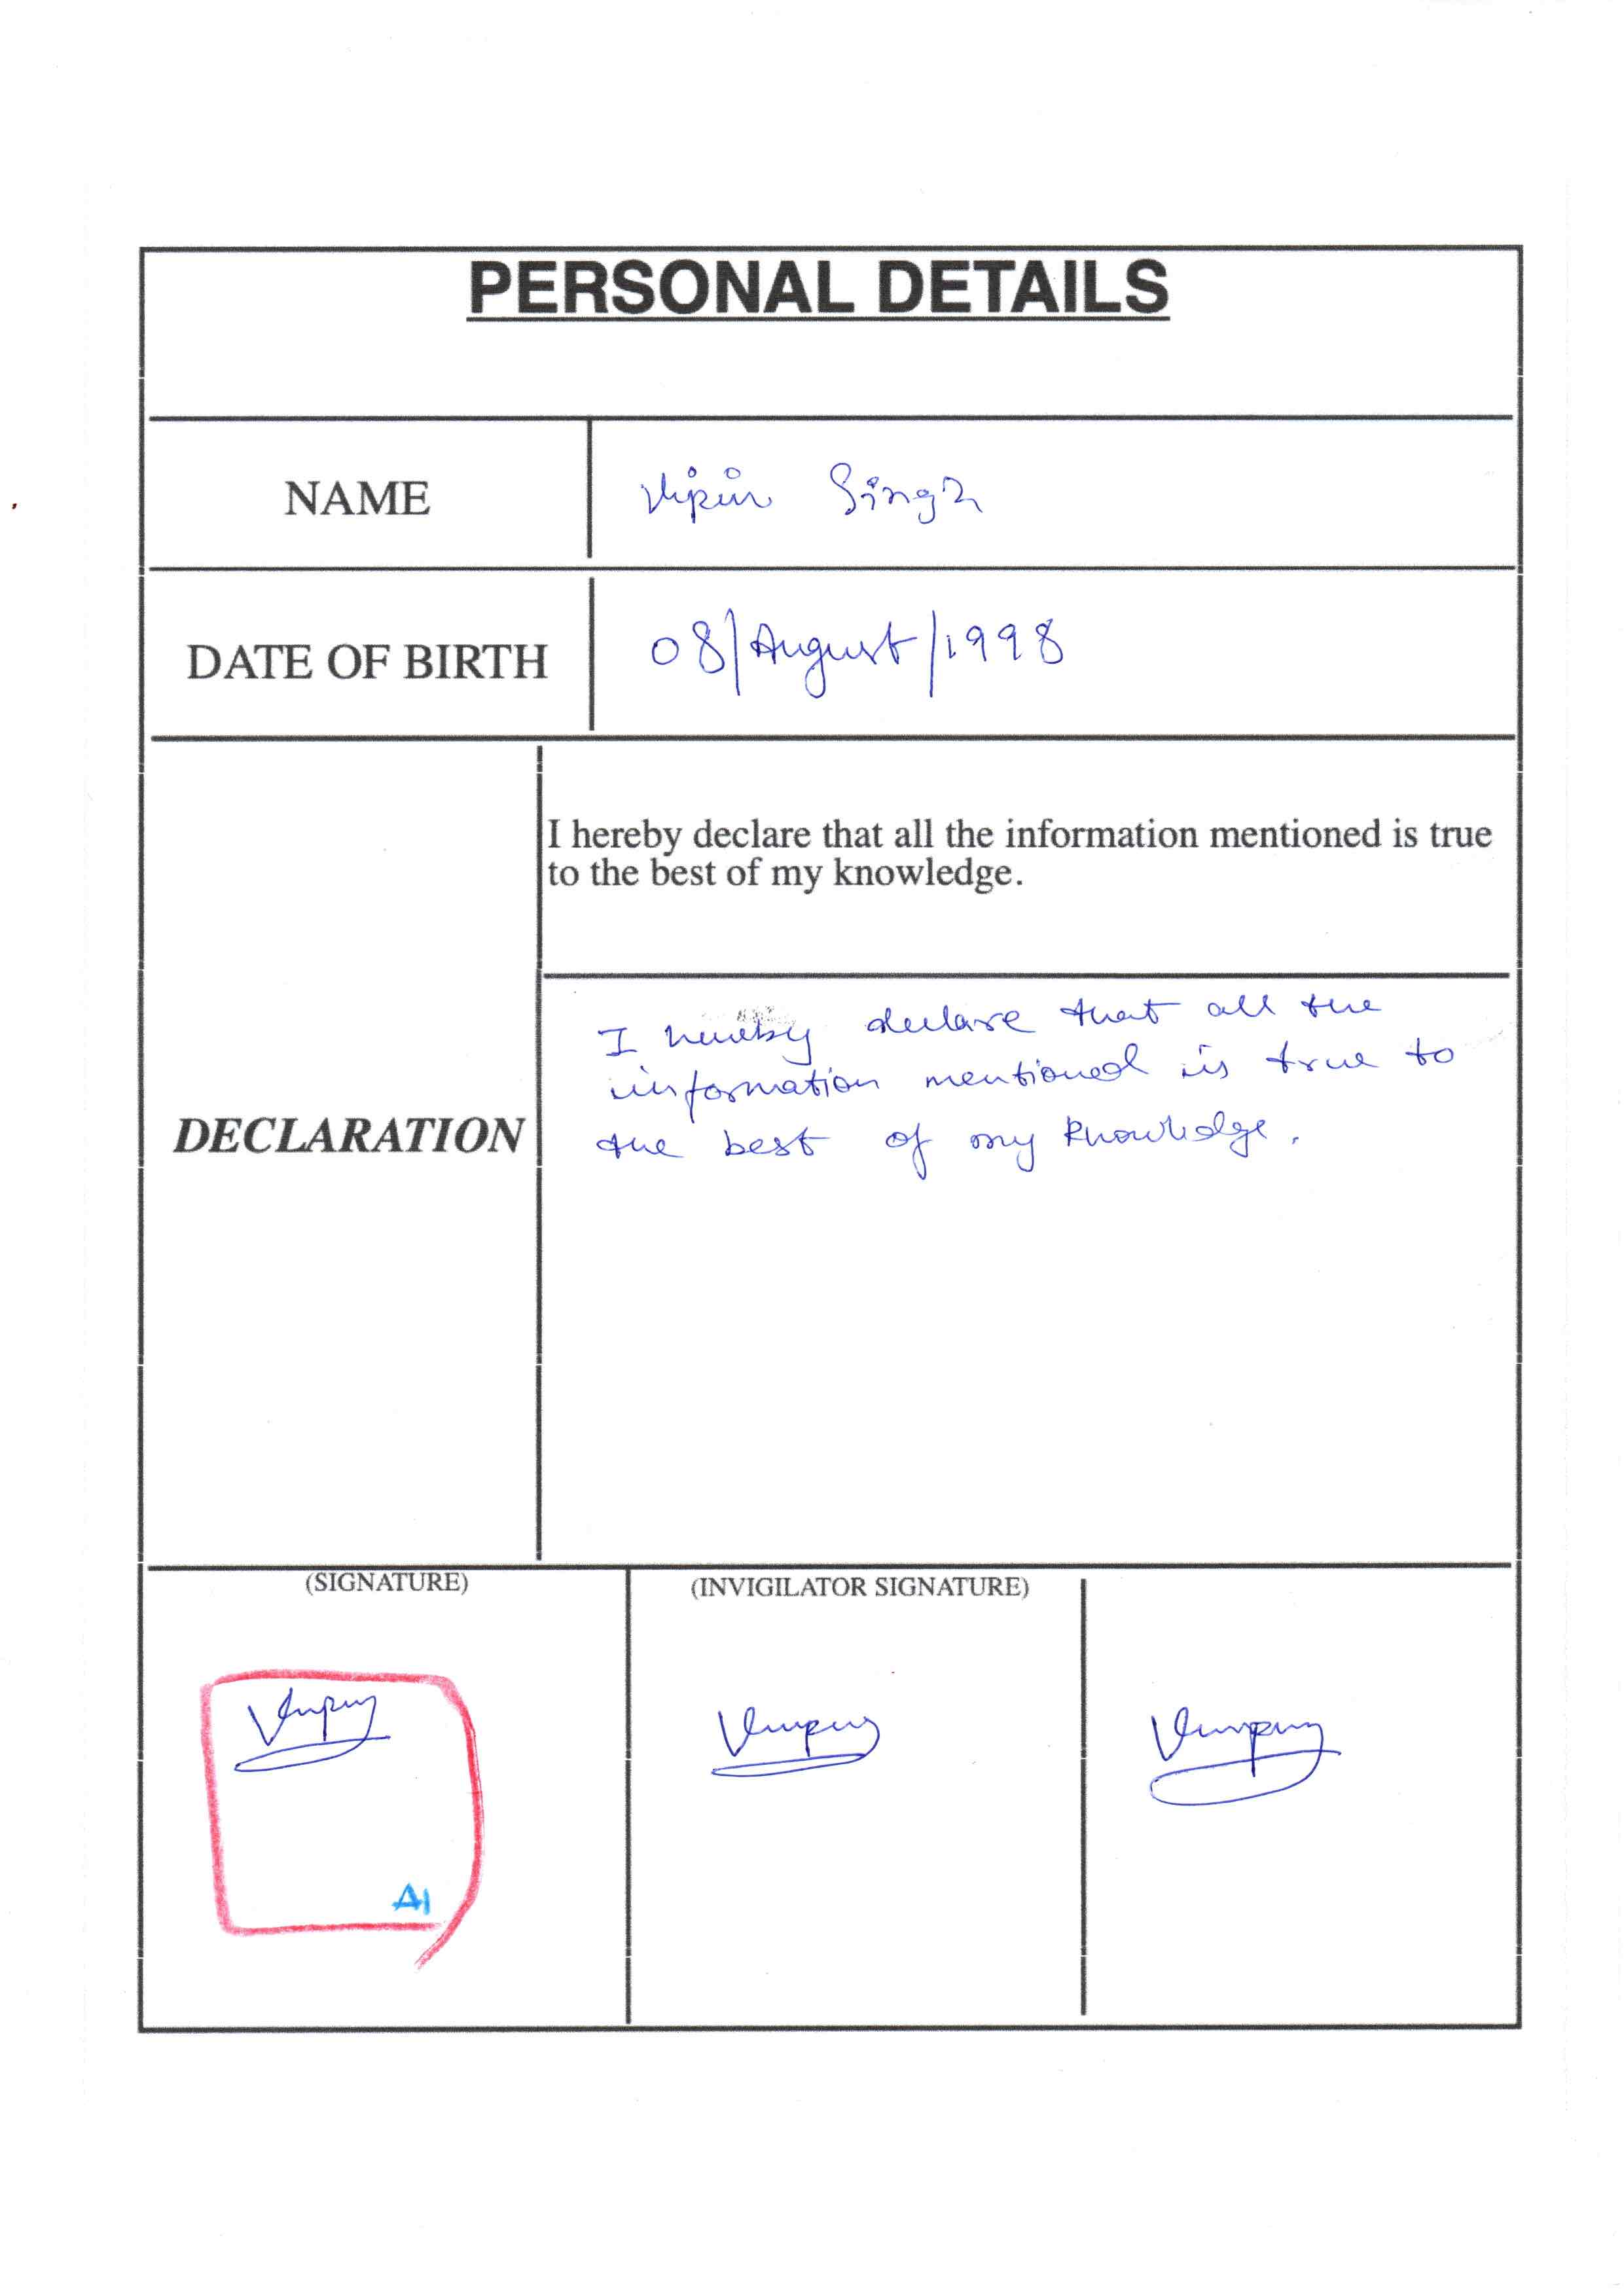 PERSONAL DETAILS
NAME
Vipin Singh
DATE OF BIRTH
08/August/1998
I hereby declare that all the information mentioned is true
to the best of my knowledge.
DECLARATION
I hereby declare that all the
information mentioned is true to
the best of my knowledge.
(SIGNATURE)
(INVIGILATOR SIGNATURE)
A1